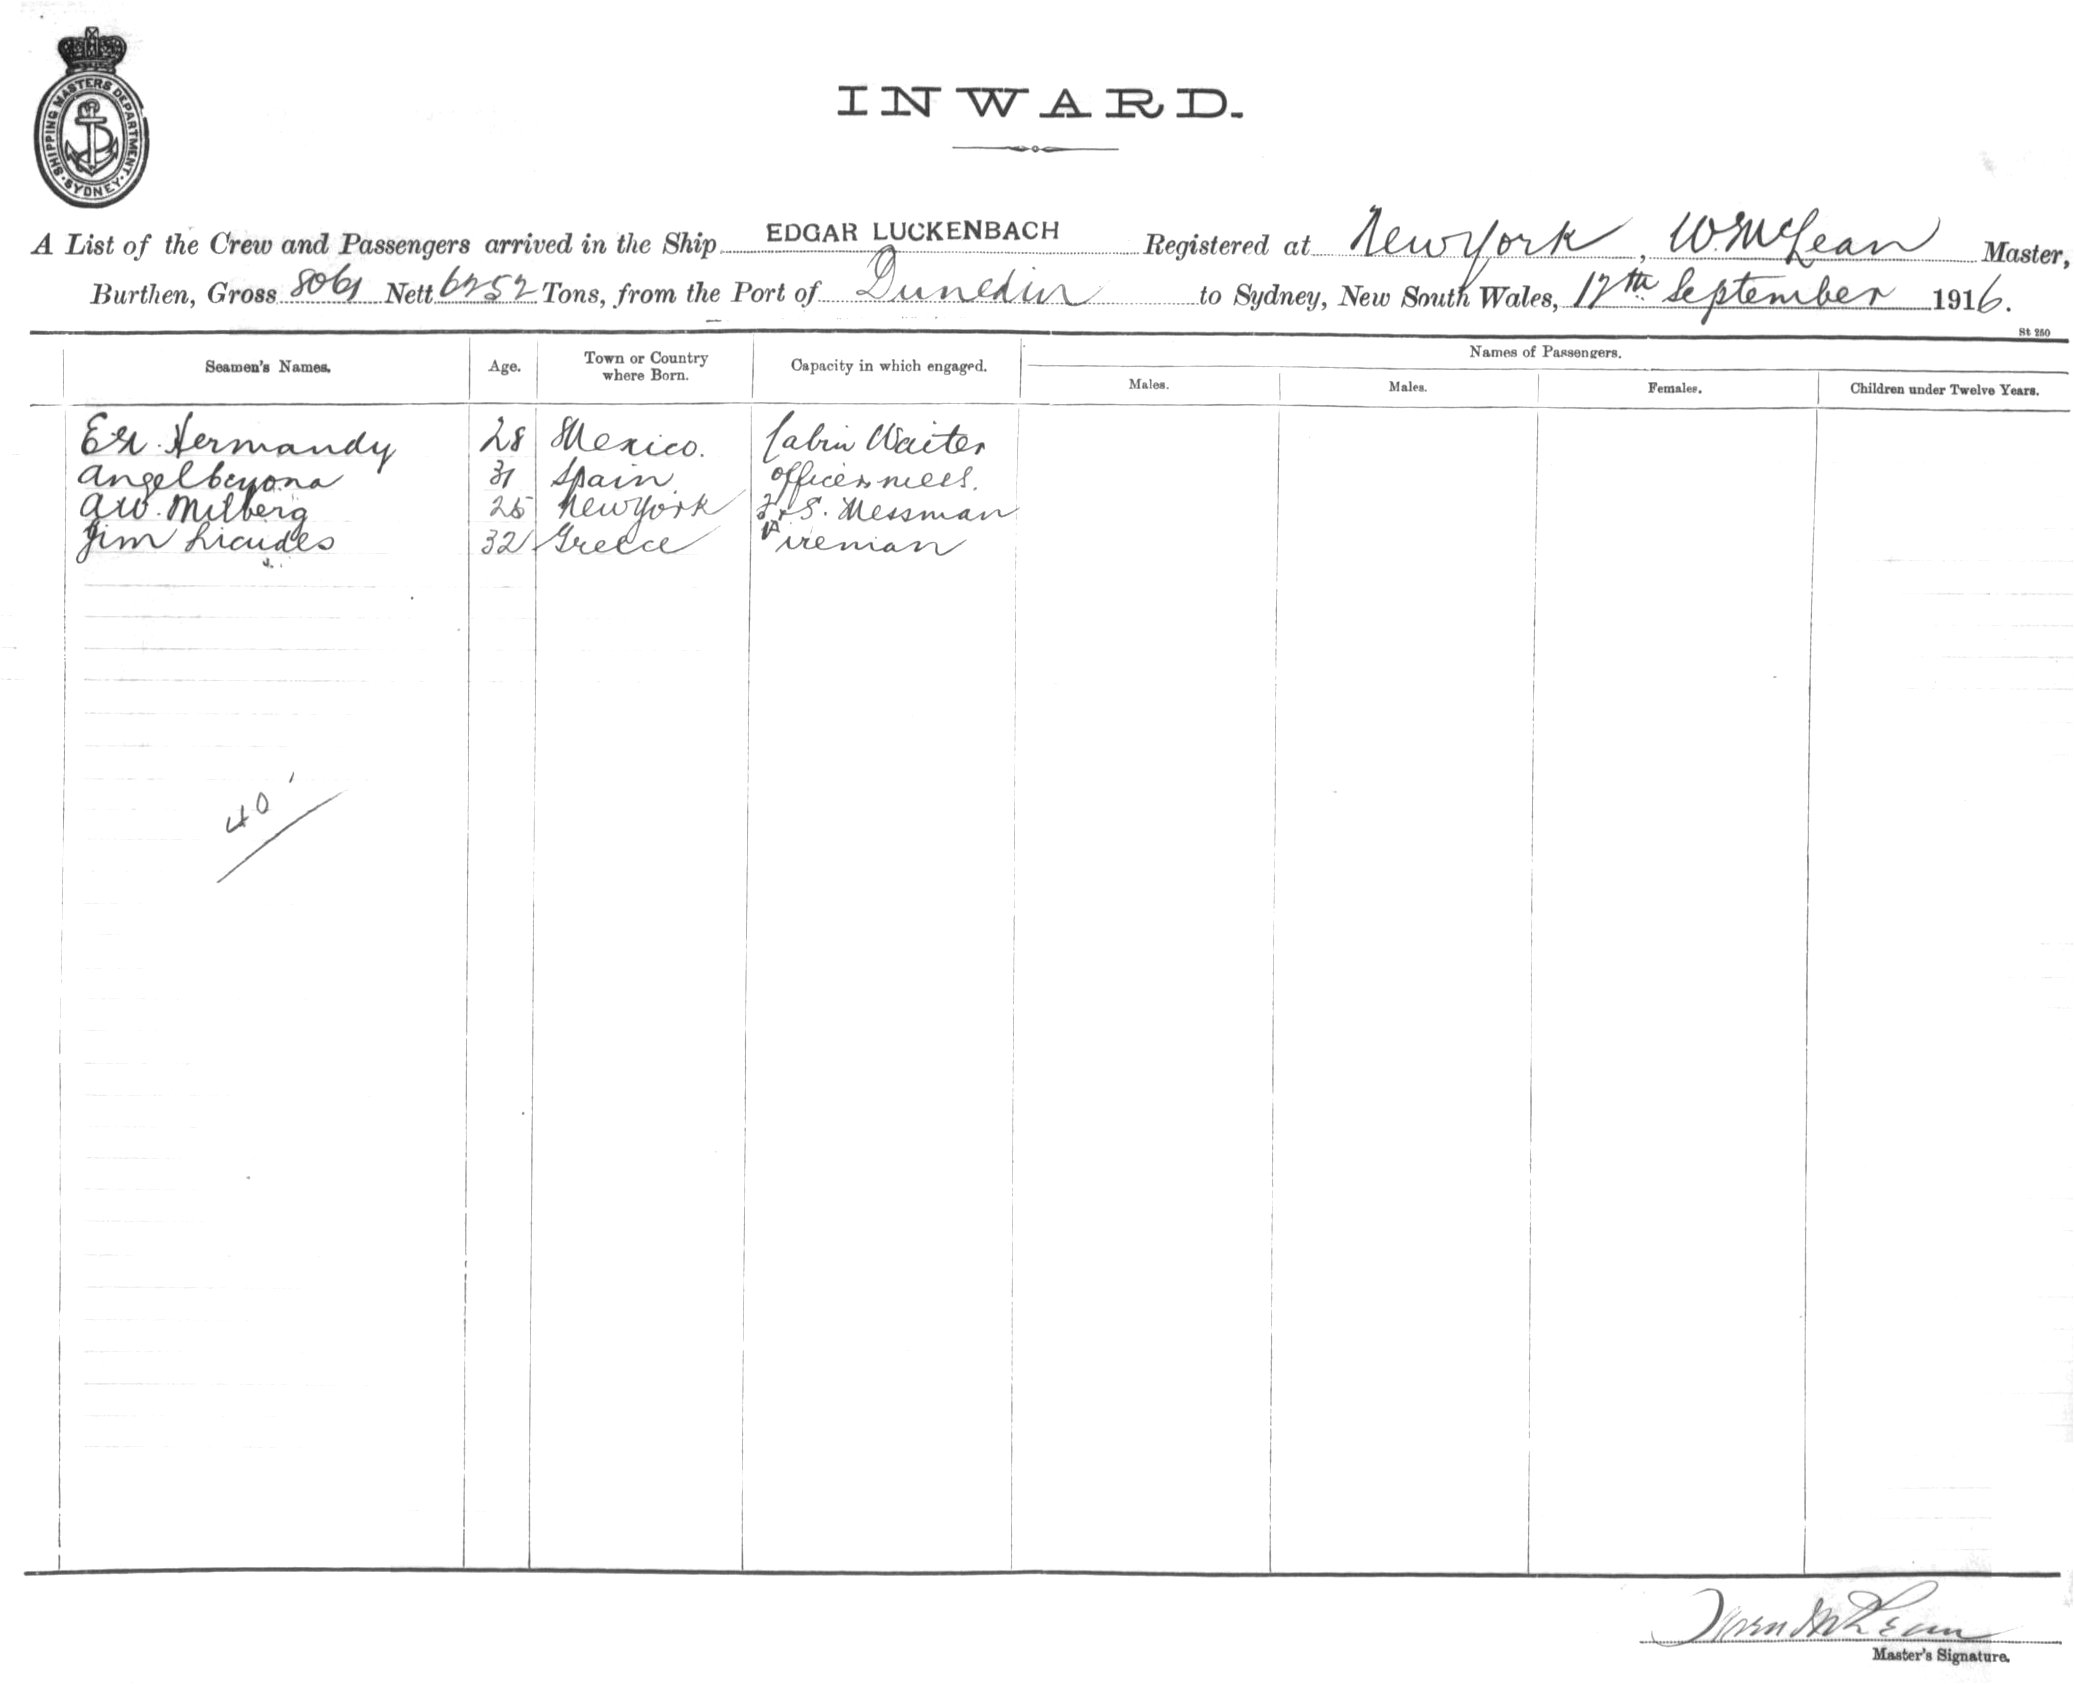 SHIPPING MASTERS DEPARTMENT. SYDNEY.
INWARD.
A List of the Crew and Passengers arrived in the Ship EDGAR LUCKENBACH Registered at New York, W. McLean Master,
Burthen, Gross 8061 Nett 6252 Tons, from the Port of Dunedin to Sydney, New South Wales, 12th September 1916.
St 250
Seamen's Names. Age. Town or Country where Born. Capacity in which engaged. Names of Passengers.
Males. Males. Females. Children under Twelve Years.
Hermandy 28 Mexico. Cabin Waiter
Angel 31 Spain officers mess.
A.W. Milberg 25 New York S. Messman
Jim 32 Greece Fireman
40
McLean
Master's Signature.